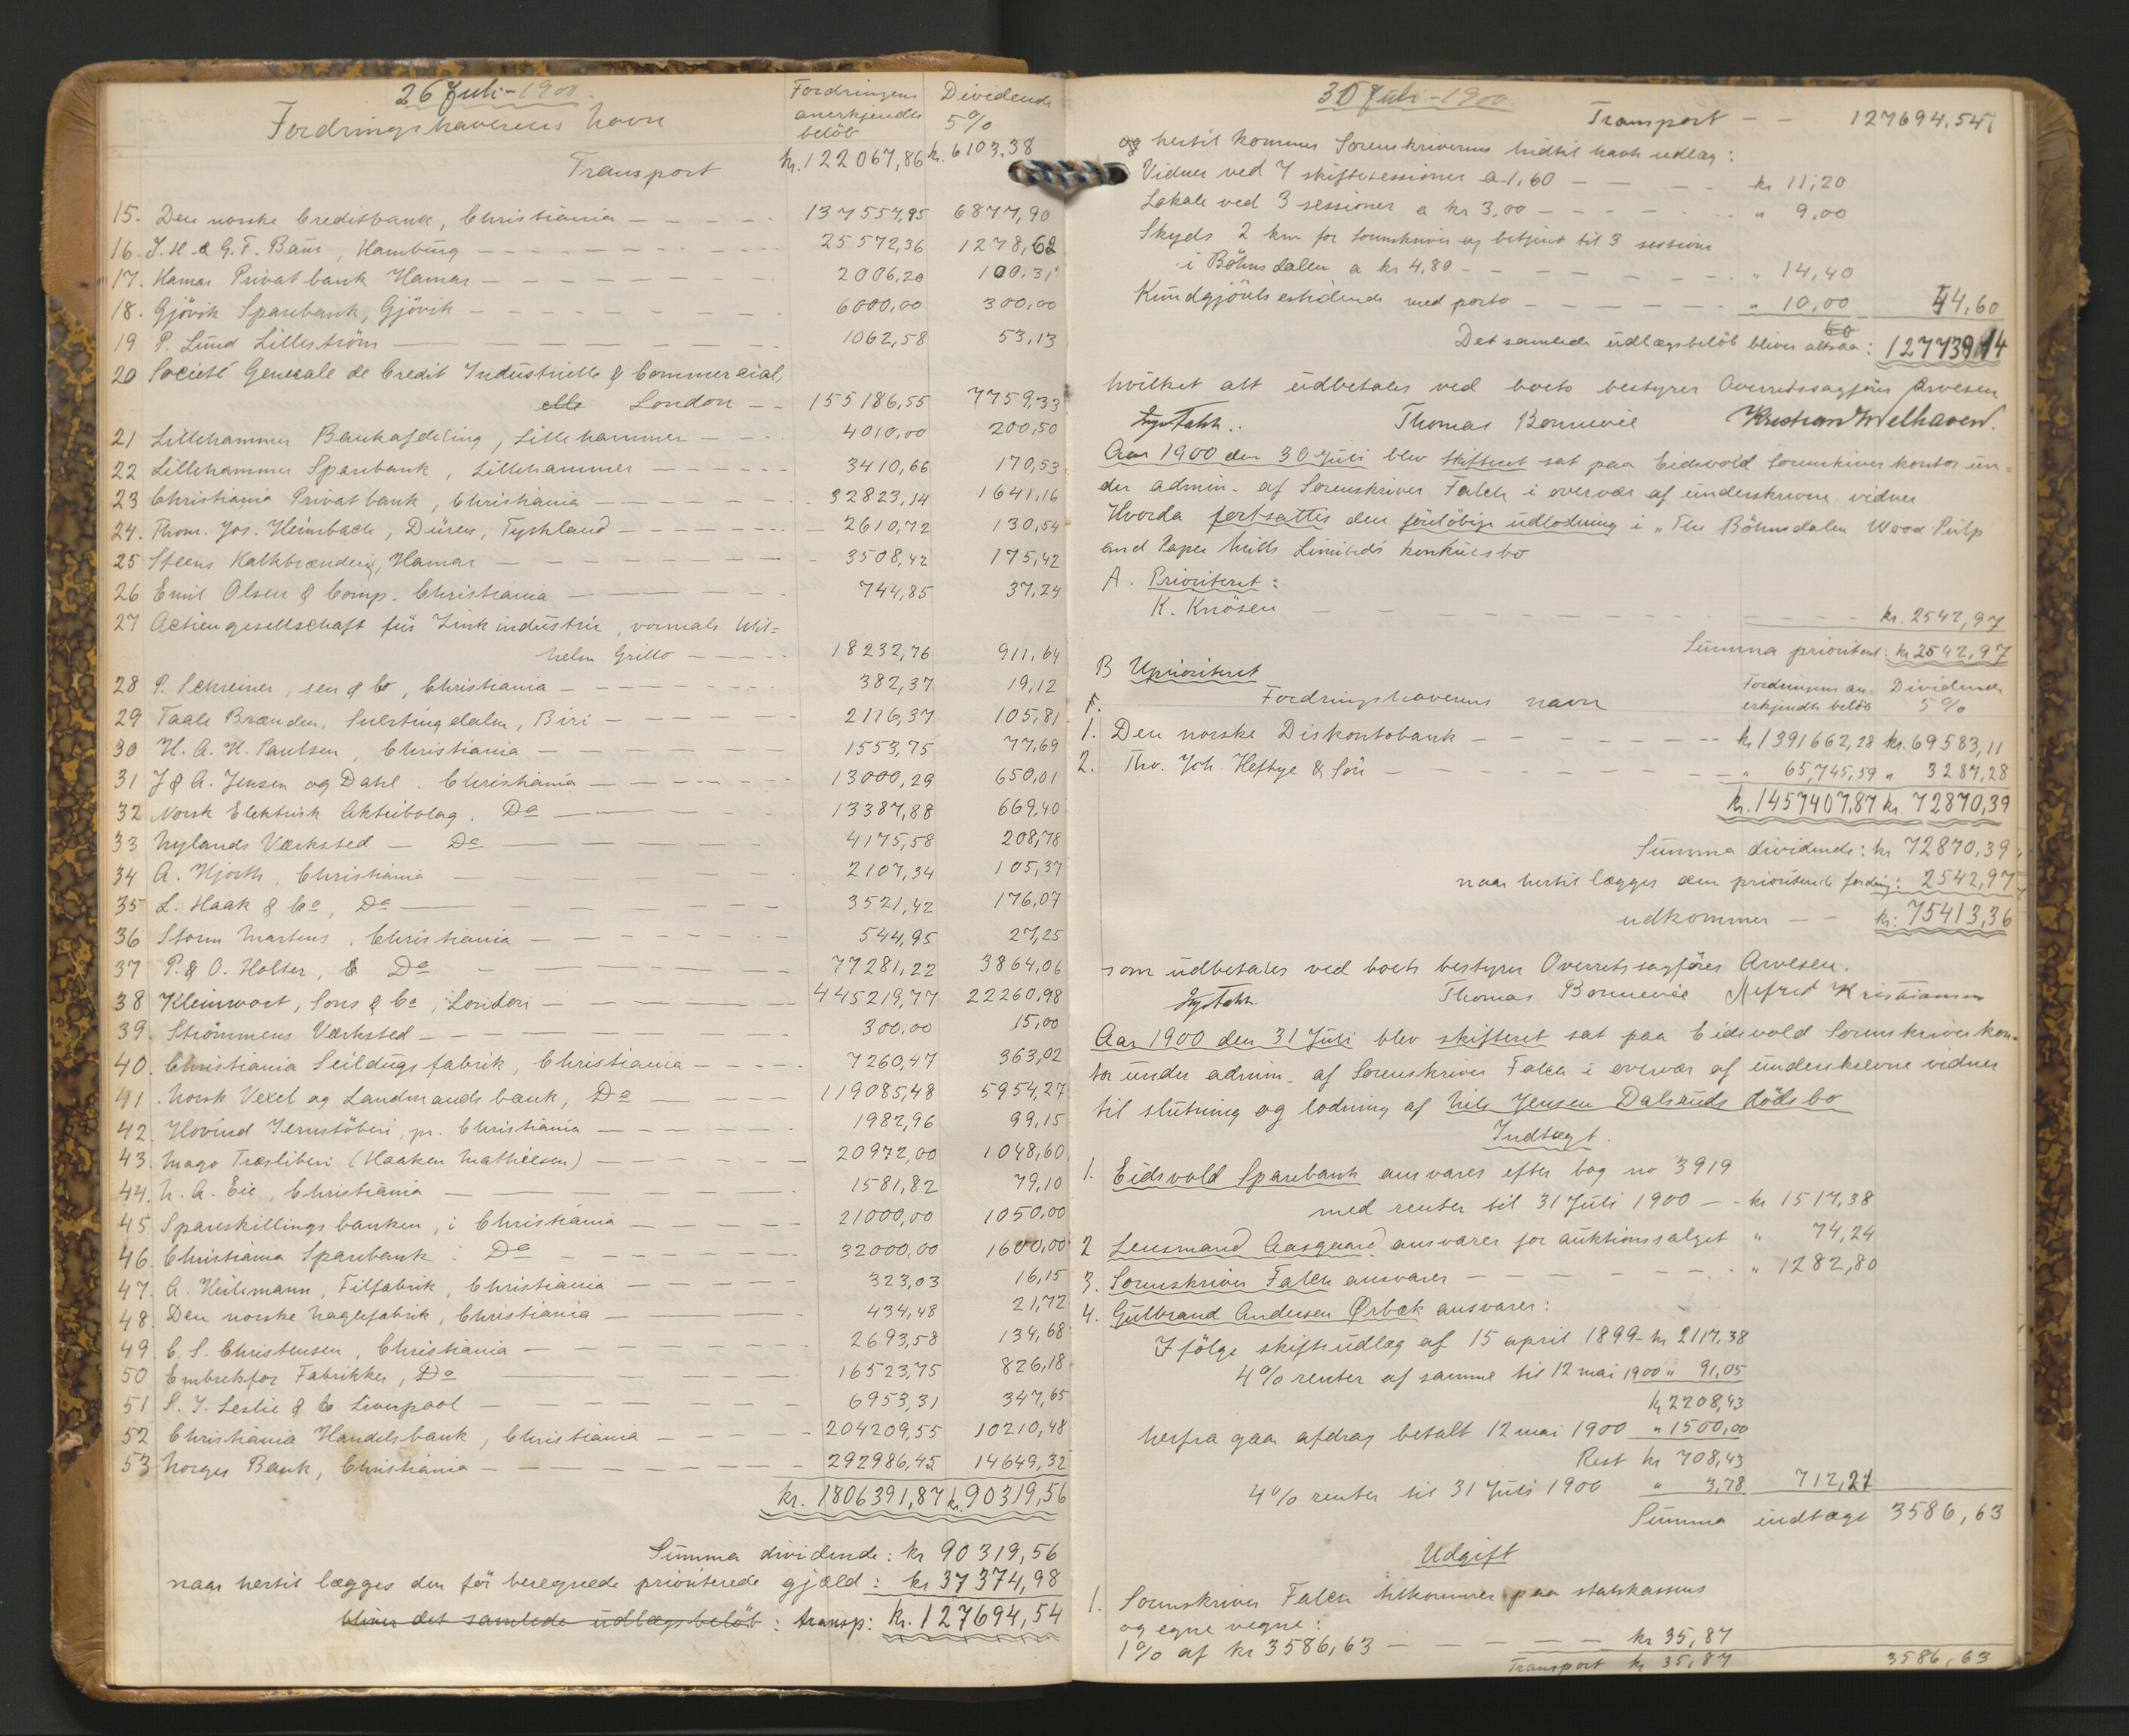 26 Juli - 1900.
Fordringshaverens Navn
Fordringens anerkjendte beløb
Dividende 5%
Transport kr. 122067,86 kr. 6103,38
15. Den norske Creditbank, Christiania 137557,95 6877,90
16. J. H. & G. F. Baur, Hamburg 25572,36 1278,62
17. Hamar Privatbank Hamar 2006,20 100,31
18. Gjövik Sparebank, Gjövik 6000,00 300,00
19 P. Lund Lilleström 1062,58 53,13
20 Societé Generale de Credit Industrielle & Commercial,
elle London 155186,55 7759,33
21 Lillehammer Bankafdeling, Lillehammer 4010,00 200,50
22 Lillehammer Sparebank, Lillehammer 3410,66 170,53
23 Christiania Privatbank, Christiania 32823,14 1641,16
24. Thom. Jos. Heimbach, Düren, Tyskland 2610,72 130,54
25 Steens Kalkbrænderi, Hamar 3508,42 175,42
26 Emil Olsen & Comp. Christiania 744,85 37,24
27 Actiengesellschaft für Zinkindustrie, vormals Wil=
helm Grillo 18232,76 911,64
28 P. Schreiner, sen & Co, Christiania 382,37 19,12
29 Taale Brænden, Snertingdalen, Biri 2116,37 105,81
30 H. A. H. Paulsen, Christiania 1553,75 77,69
31 J & A. Jensen og Dahl. Christiania 13000,29 650,01
32 Norsk Elektrisk Aktiebolag. Do 13387,88 669,40
33 Nylands Værksted - Do 4175,58 208,78
34 A. Hjorth, Christiania 2107,34 105,37
35 L. Haak & Co, Do 3521,42 176,07
36 Storm Martens, Christiania 544,95 27,25
37 P. & O. Holter, Do 77281,22 3864,06
38 Kleinwort, Sons & Co, London 445219,77 22260,98
39. Strömmens Værksted 300,00 15,00
40. Christiania Seildugsfabrik, Christiania 7260,47 363,02
41. Norsk Vexel og Landmandsbank, Do 119085,48 5954,27
42. Hovind Jernstöberi, pr. Christiania 1982,96 99,15
43. Mago Træsliberi (Haaken Mathiesen) 20972,00 1048,60
44. N. A. Eie, Christiania 1581,82 79,10
45. Spareskillingsbanken, i Christiania 21000,00 1050,00
46. Christiania Sparebank. Do 32000,00 1600,00
47. A. Heilmann, Filfabrik, Christiania 323,03 16,15
48. Den norske Naglefabrik, Christiania 434,48 21,72
49. C. S. Christensen, Christiania 2693,58 134,68
50 Embretsfos Fabrikker, Do 16523,75 826,18
51 S. J. Leslie & Co Liverpool 6953,31 347,65
52 Christiania Handelsbank, Christiania 204209,55 10210,48
53 Norges Bank, Christiania 292986,45 14649,32
kr. 1806391,87 kr. 90319,56
Summa dividende: kr 90319,56
naar hertil lægges den för beregnede prioriterede gjæld: kr 37374,98
bliver det samlede udlægsbelöb: transp: kr. 127694,54
30 Juli - 1900
Transport - - 127694.54
og hertil kommer Sorenskriverens hidtil havte udlæg:
Vidner ved 7 skiftesessioner a 1,60 kr 11,20
Lokale ved 3 sessioner a kr 3,00 " 9,00
Skyds 2 km for sorenskriver og betjent til 3 sessioner
i Böhnsdalen a kr 4,80 " 14,40
Kundgjörelsestidende med porto " 10,00 44,60
Det samlede udlægsbelöb bliver altsaa: 127739,14
hvilket alt udbetales ved boets bestyrer Overretssagförer Arvesen
Thomas Bonnevie Kristian Welhaven.
Aar 1900 den 30 Juli blev skifteret sat paa Eidsvold Sorenskriverkontor un=
der admin. af Sorenskriver Falch i overvær af underskrevne vidner
Hvorda fortsattes den foreløbige udlodning i "The Böhnsdalen Wood Pulp
and Paper Mills Limited's konkursbo
A. Prioriteret:
K. Knösen kr. 2542,97
Summa prioriteret: kr 2542,97
B Uprioriteret
Fordringshaverens navn
Fordringens an-
erkjendte belöb
Dividende
5%
1. Den norske Diskontobank kr 1391662,28 kr. 69583,11
2. Tho. Joh. Heftye & Sön " 65,745,59 " 3287,28
kr. 1457407,87 kr. 72870,39
Summa dividende: kr 72870,39
naar hertil lægges den prioriterede fordring: 2542,97
udkommer - - kr: 75413,36
som udbetales ved boets bestyrer Overretssagförer Arvesen.
Thomas Bonnevie Alfred Kristiansen
Aar 1900 den 31 Juli blev skifteret sat paa Eidsvold Sorenskriverkon-
tor under admin. af Sorenskriver Falch i overvær af underskrevne vidner
til slutning og lodning af Nils Jensen Dalsruds dödsbo
Indtægt.
1. Eidsvold Sparebank ansvarer efter bog no 3919
med renter til 31 Juli 1900 - - kr 1517,38
2 Lensmand Aasgaard ansvarer for auktionssalget " 74,24
3. Sorenskriver Falch ansvarer " 1282,80
4. Gulbrand Andersen Ørbæk ansvarer:
Ifölge skifteudlæg af 15 april 1899 - kr 2117,38
4% renter af samme til 12 mai 1900 " 91,05
kr 2208,43
herfra gaar afdrag betalt 12 mai 1900 " 1500,00
Rest kr 708,43
4% renter til 31 Juli 1900 " 3,78 712,21
Summa indtægt 3586,63
Udgift
1. Sorenskriver Falch tilkommer paa statskassens
og egne vegne:
1% af kr 3586,63 kr 35,87
Transport kr 35,87 3586,63